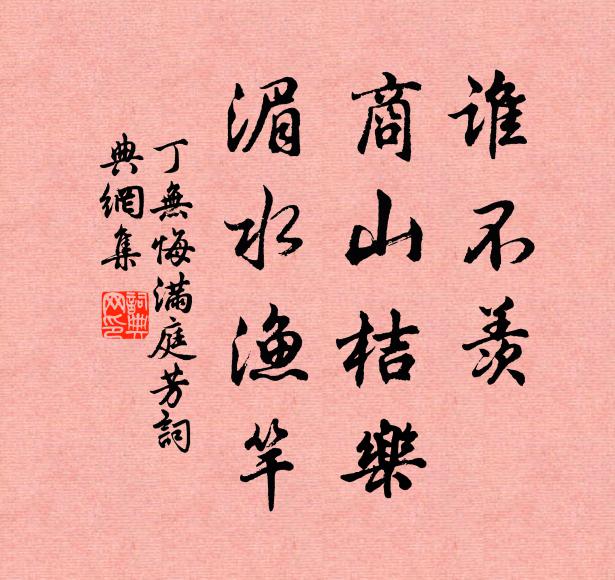 誰不羨
商山桔樂
湄水漁竿
丁無悔滿庭芳詞
典網集
詞典網印